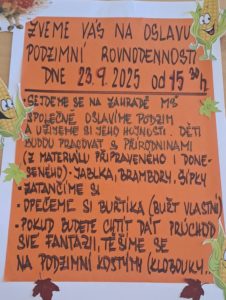 ZVEME VÁS NA OSLAVU
PODZIMNÍ ROVNODENNOSTI
DNE 23.9.2025 od 15 30h
- SEJDEME SE NA ZAHRADĚ MŠ
SPOLEČNĚ OSLAVÍME PODZIM
A UŽIJEME SI JEHO HOJNOSTI. DĚTI
BUDOU PRACOVAT S PŘÍRODNINAMI
(Z MATERIÁLU PŘIPRAVENÉHO I DONE-
SENÉHO) - JABLKA, BRAMBORY, ŠÍPKY
- ZATANČÍME SI
- OPEČEME SI BUŘTÍKA (BUŘT VLASTNÍ)
- POKUD BUDETE CHTÍT DÁT PRŮCHOD
SVÉ FANTAZII, TĚŠÍME SE
NA PODZIMNÍ KOSTÝMY (KLOBOUKY...